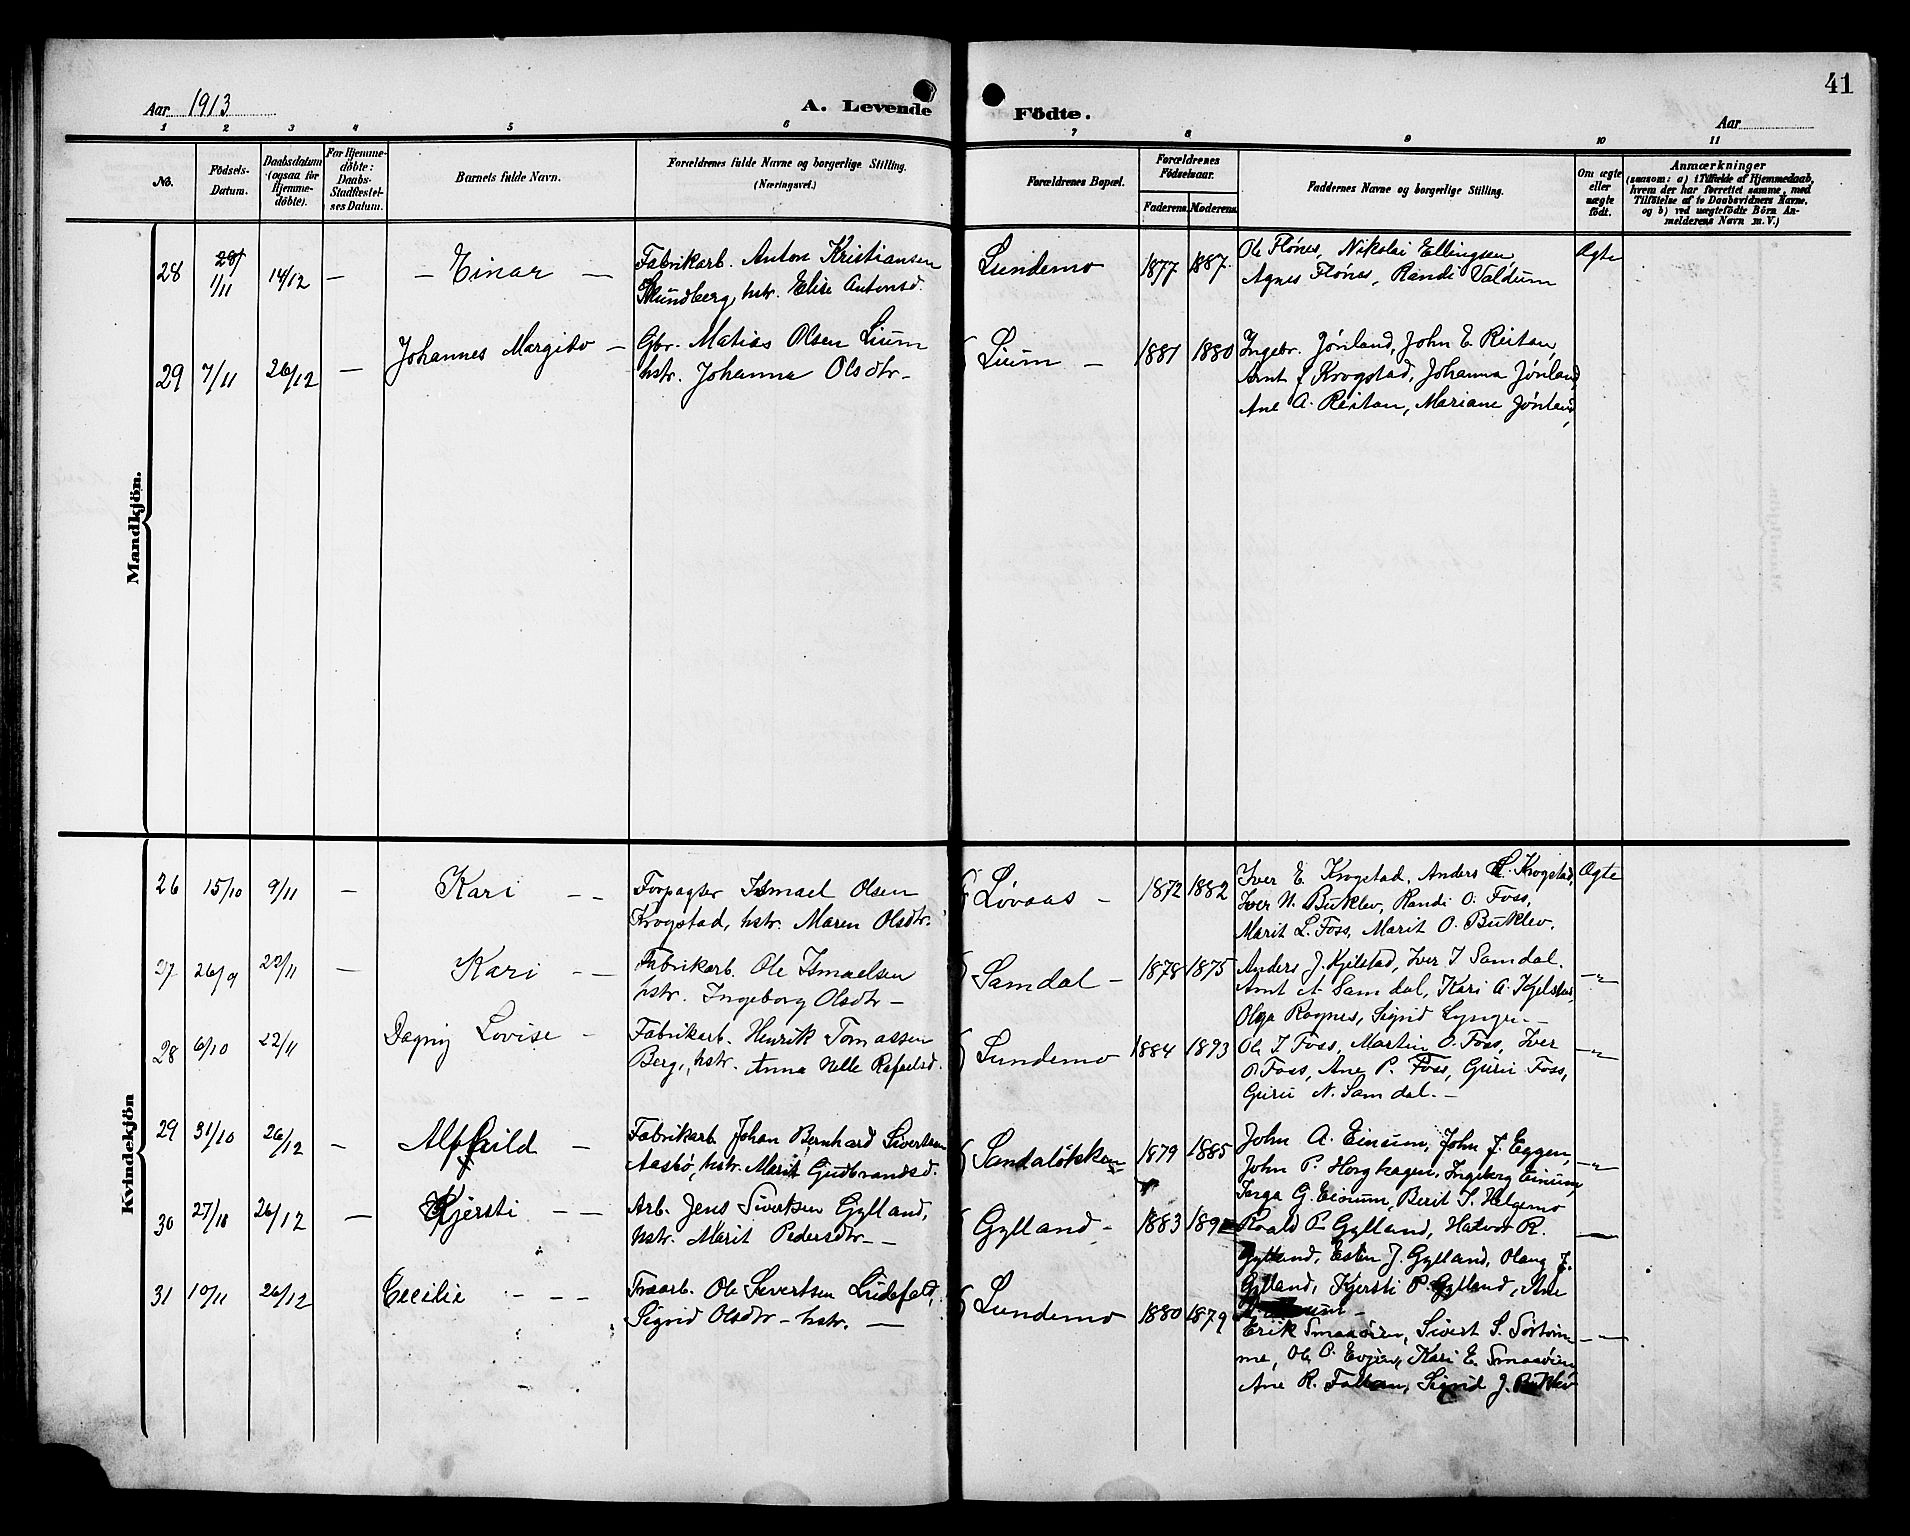 41
Aar 1913
A. Levende Födte.
Aar
1 2 3 4 5 6 7 8 9 10 11
No.
Födsels-Datum.
Daabsdatum (ogsaa for Hjemme-döbte).
For Hjemme-döbte: Daabs-Stadfæstel-ses Datum.
Barnets fulde Navn.
Forældrenes fulde Navne og borgerlige Stilling.
(Næringsvei.)
Forældrenes Bopæl.
Forældrenes Födselsaar.
Faderens. Moderens.
Faddernes Navne og borgerlige Stilling.
Om ægte eller uægte födt.
Anmærkninger
(saasom: a) i Tilfælde af Hjemmedaab,
hvem der har forrettet samme, med
Tilföielse af to Daabsvidners Navne,
og b) ved uægtefödte Börn An-
melderens Navn m. V.)
Mandkjön.
28 1/11 14/12 — – Einar — Fabrikarb. Anton Kristiansen
Mundberg, hstr. Elise Antonsd.
Lundemo 1877 1887. Ole Flónes, Nikolai Ellingsen,
Agnes Flónes, Randi Valdum
Ægte
29 7/11 26/12 — Johannes Margido – Gbr. Matias Olsen Lium
hstr. Johanna Olsdtr –
Lium – 1881 1880 Ingebr. Jønland, John E. Reitan,
Arnt J. Krogstad, Johanna Jønland
Ane A. Reitan, Mariane Jønland,
Kvindekjön
26 15/10 9/11 – Kari – – Forpagter Ismael Olsen
Krogstad, hstr. Maren Olsdtr.
Løvaas – 1872 1882 Iver E. Krogstad, Anders L. Krogstad,
Iver N. Buklev, Randi O. Foss,
Marit L. Foss, Marit O. Buklev.
Ægte
27 26/9 23/11 – Kari – – Fabrikarb. Ole Ismaelsen
hstr. Ingeborg Olsdtr –
Samdal – 1878 1875 Anders J. Kjelstad, Iver I Samdal.
Arnt A. Samdal, Kari A. Kjelstad,
Olga Rognes, Sigrid Lyngen –
–"–
28 6/10 22/11 Dagny Lovise – Fabrikarb. Henrik Tomassen
Berg, hstr. Anna Nelle Rafaelsd.
Lundemo 1884 1893 Ole I Foss, Martin O. Foss, Iver
O. Foss, Ane P. Foss, Guru Foss,
Guru N. Samdal. –
–"–
29 31/10 26/12 – Alfhild – Fabrikarb Johan Bernhard Sivertsen
Aasbø, hstr. Marit Gudbrandsd.
Sandaløkken 1879 1885 John A. Einum, John J. Eggen,
John P. Horghagen, Ingeborg Einum,
G. Einum, Berit S. Helgemo
–"–
30 27/10 26/12 — Kjersti – – Arb. Jens Sivertsen Gylland,
hstr. Marit Pedersdtr – –
Gylland – 1883 Roald P. Gylland, R.
Gylland, Esten J. Gylland, Olaug J.
Gylland, Kjersti P. Gylland, Ane
—
31 10/11 26/12 Cecilie – – – Træarb. Ole Sivertsen
Sigrid Olsdtr – hstr. —
Lundemo 1880 1879 Erik Smaaøien, Sivert S. Sørtøm-
me, Ole P. Evjen, Kari E. Smaaøien,
Ane R. Sigrid J. Buklev
–"–